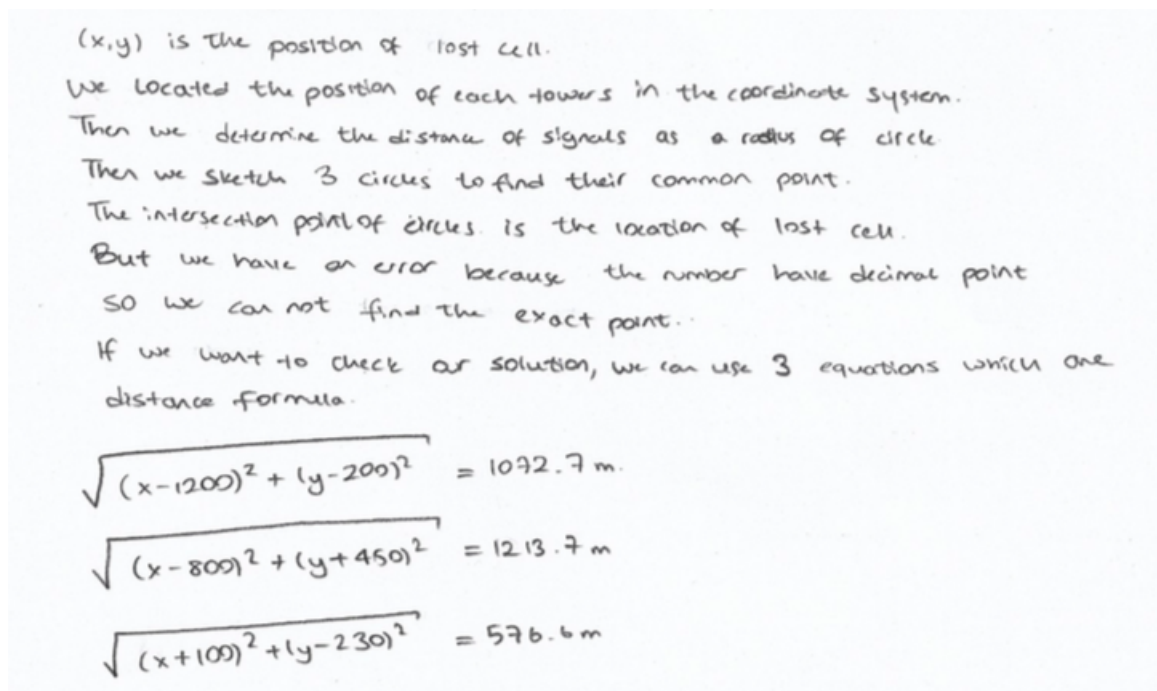 (x,y) is the position of lost cell.
We located the position of each towers in the coordinate system.
Then we determine the distance of signals as a radius of circle
Then we sketch 3 circles to find their common point.
The intersection point of circles is the location of lost cell.
But we have an error because the number have decimal point
so we can not find the exact point.
If we want to check our solution, we can use 3 equations which are
distance formula.
√(x-1200)² + (y-200)² = 1072.7 m.
√(x-800)² + (y+450)² = 1213.7 m
√(x+100)² + (y-230)² = 576.6 m